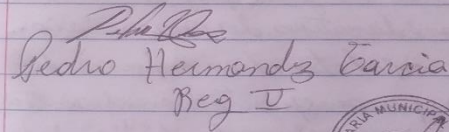 Pedro Hernandz Garcia
Reg V
ARIA MUNICIPA